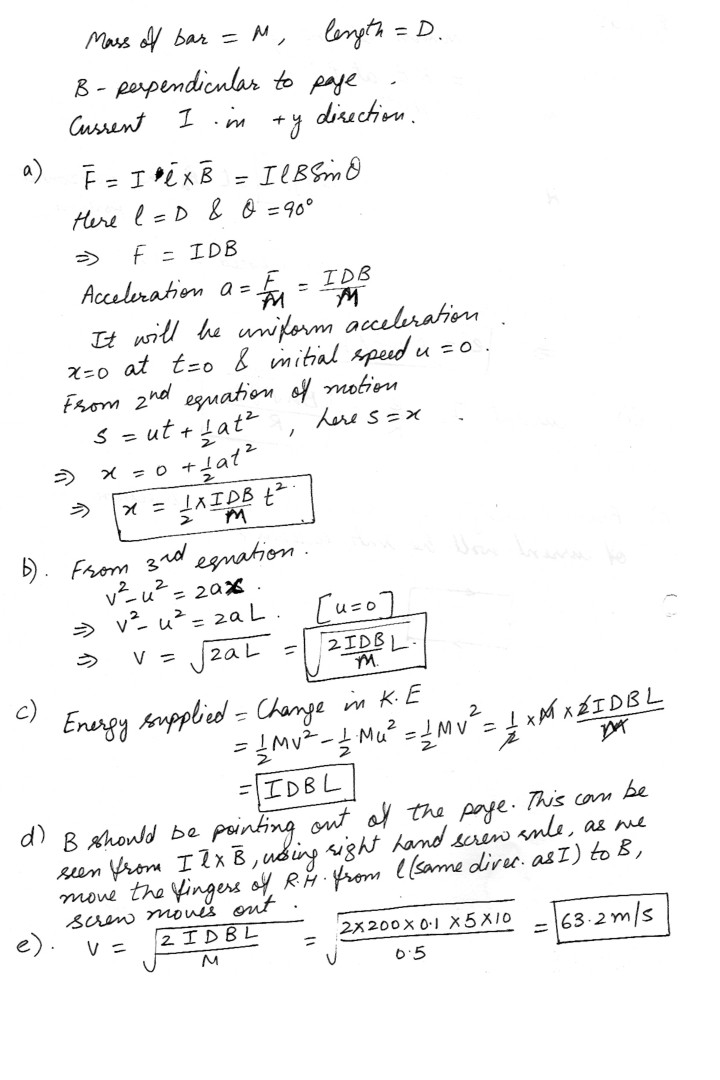 Mass of bar = M, length = D.
B - perpendicular to page
Current I in +y direction.
a) F̄ = I l̄ × B̄ = IlB Sin θ
Here l = D & θ = 90°
⇒ F = IDB
Acceleration a = F/M = IDB/M
It will be uniform acceleration
x=0 at t=0 & initial speed u = 0.
From 2nd equation of motion
s = ut + 1/2 at², here s = x
⇒ x = 0 + 1/2 at²
⇒ x = 1/2 × IDB/M t²
b). From 3rd equation.
v² - u² = 2ax
⇒ v² - u² = 2aL. [u=0]
⇒ v = √(2aL) = √(2IDBL/M)
c) Energy supplied = Change in K.E
= 1/2 Mv² - 1/2 Mu² = 1/2 Mv² = 1/2 × M × 2IDBL/M
= IDBL
d) B should be pointing out of the page. This can be
seen from I l̄ × B̄, using right hand screw rule, as we
move the fingers of R.H. from l (same direc. as I) to B,
screw moves out.
e). v = √(2IDBL/M) = √(2×200×0.1×5×10/0.5) = 63.2 m/s